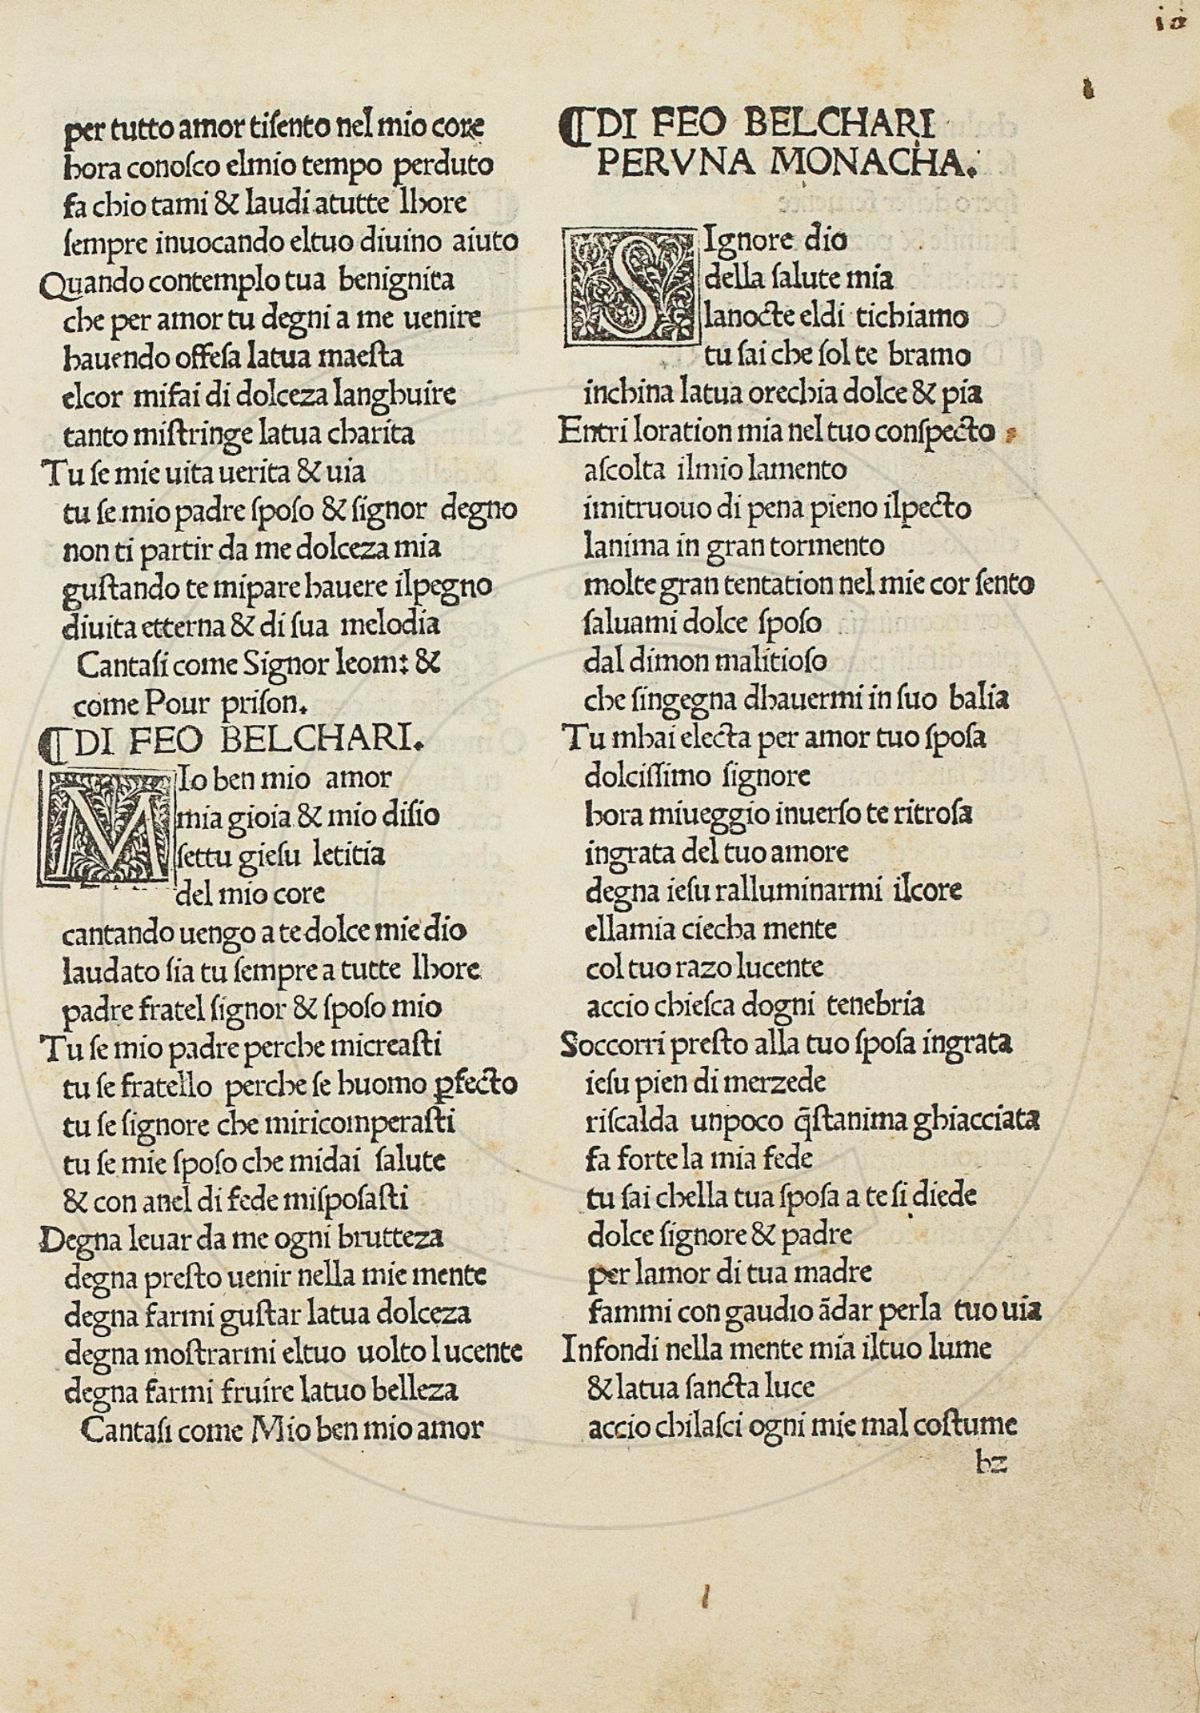 per tutto amor tiſento nel mio core
hora conoſco elmio tempo perduto
fa chio tami & laudi atutte lhore
ſempre inuocando eltuo diuino aiuto
Quando contemplo tua benignita
che per amor tu degni a me uenire
hauendo offeſa latua maeſta
elcor mifai di dolceza languhire
tanto miſtringe latua charita
Tu ſe mie uita uerita & uia
tu ſe mio padre ſpoſo & ſignor degno
non ti partir da me dolceza mia
guſtando te mipare hauere ilpegno
diuita etterna & di ſua melodia
Cantaſi come Signor leom: &
come Pour priſon.
¶DI FEO BELCHARI.
MIo ben mio amor
mia gioia & mio diſio
ſettu gieſu letitia
del mio core
cantando uengo a te dolce mie dio
laudato ſia tu ſempre a tutte lhore
padre fratel ſignor & ſpoſo mio
Tu ſe mio padre perche micreaſti
tu ſe fratello perche ſe huomo ꝑfecto
tu ſe ſignore che miricomperaſti
tu ſe mie ſpoſo che midai ſalute
& con anel di fede miſpoſaſti
Degna leuar da me ogni brutteza
degna preſto uenir nella mie mente
degna farmi guſtar latua dolceza
degna moſtrarmi eltuo uolto lucente
degna farmi fruire latuo belleza
Cantaſi come Mio ben mio amor
¶DI FEO BELCHARI
PERVNA MONACHA.
SIgnore dio
della ſalute mia
lanocte eldi tichiamo
tu ſai che ſol te bramo
inchina latua orechia dolce & pia
Entri loration mia nel tuo conſpecto
aſcolta ilmio lamento
imitruouo di pena pieno ilpecto
lanima in gran tormento
molte gran tentation nel mie cor ſento
ſaluami dolce ſpoſo
dal dimon malitioſo
che ſingegna dhauermi in ſuo balia
Tu mhai electa per amor tuo ſpoſa
dolciſſimo ſignore
hora miueggio inuerſo te ritroſa
ingrata del tuo amore
degna ieſu ralluminarmi ilcore
ellamia ciecha mente
col tuo razo lucente
accio chieſca dogni tenebria
Soccorri preſto alla tuo ſpoſa ingrata
ieſu pien di merzede
riſcalda unpoco q̃ſtanima ghiacciata
fa forte la mia fede
tu ſai chella tua ſpoſa a te ſi diede
dolce ſignore & padre
per lamor di tua madre
fammi con gaudio ãdar perla tuo uia
Infondi nella mente mia iltuo lume
& latua ſancta luce
accio chilaſci ogni mie mal coſtume
bz